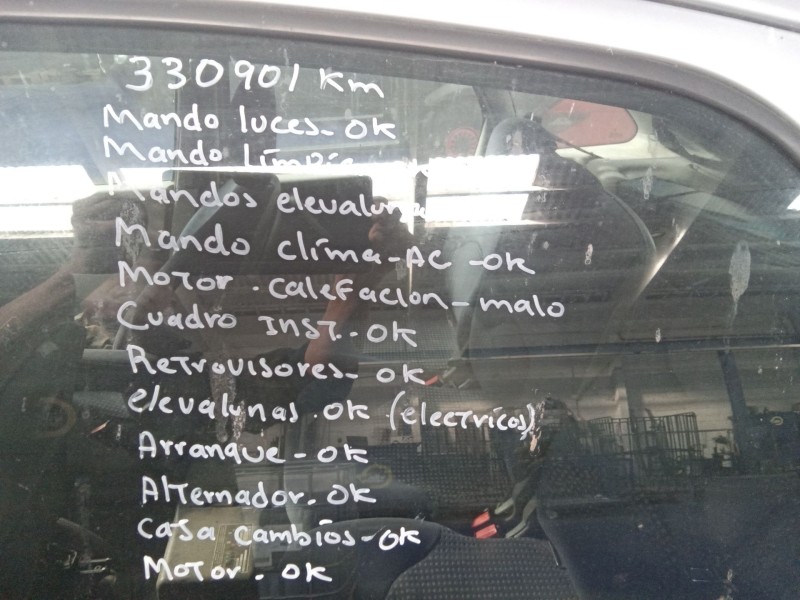 330901 Km
Mando luces-OK
Mando limpia
Mandos elevalunas
Mando clima-AC-OK
Motor.calefacion-malo
Cuadro INST.-OK
Retrovisores-OK
elevalunas.OK (electricos)
Arranque-OK
Alternador.OK
caja cambios-OK
Motor.OK